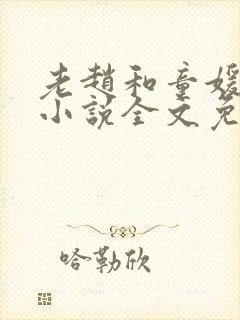 老赵和童媛
小說全文免
哈勒欣